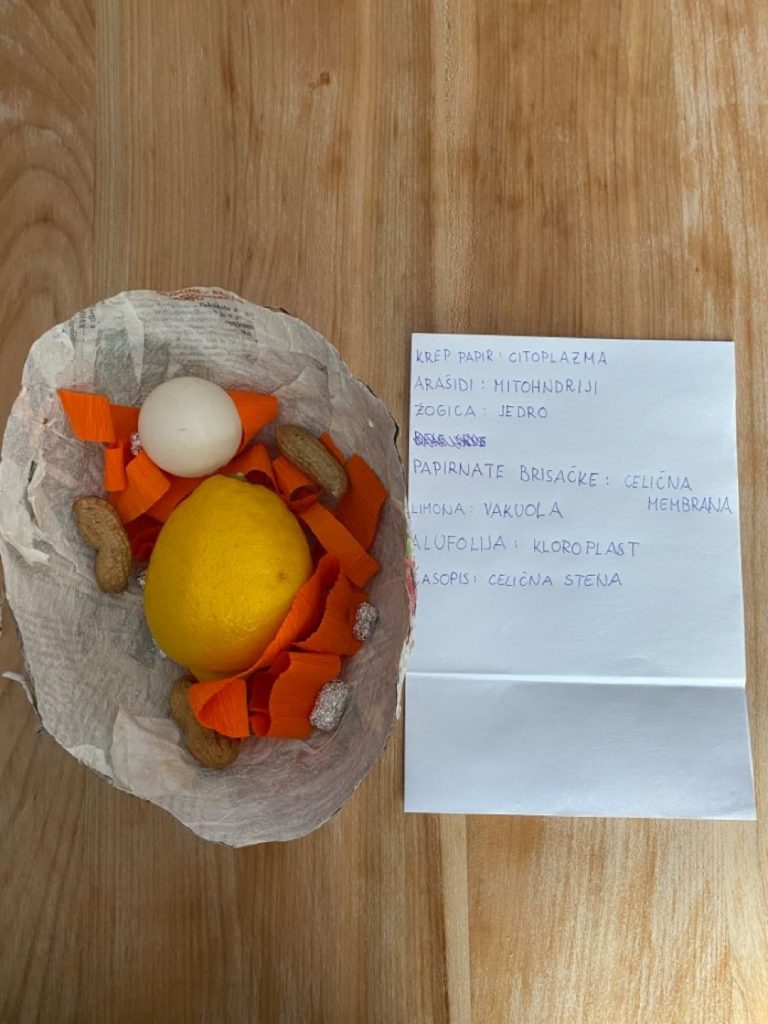 KREP PAPIR : CITOPLAZMA
ARAŠIDI : MITOHNDRIJI
ŽOGICA : JEDRO
PAPIRNATE BRISAČKE : CELIČNA
MEMBRANA
LIMONA : VAKUOLA
ALUFOLIJA : KLOROPLAST
ČASOPIS : CELIČNA STENA